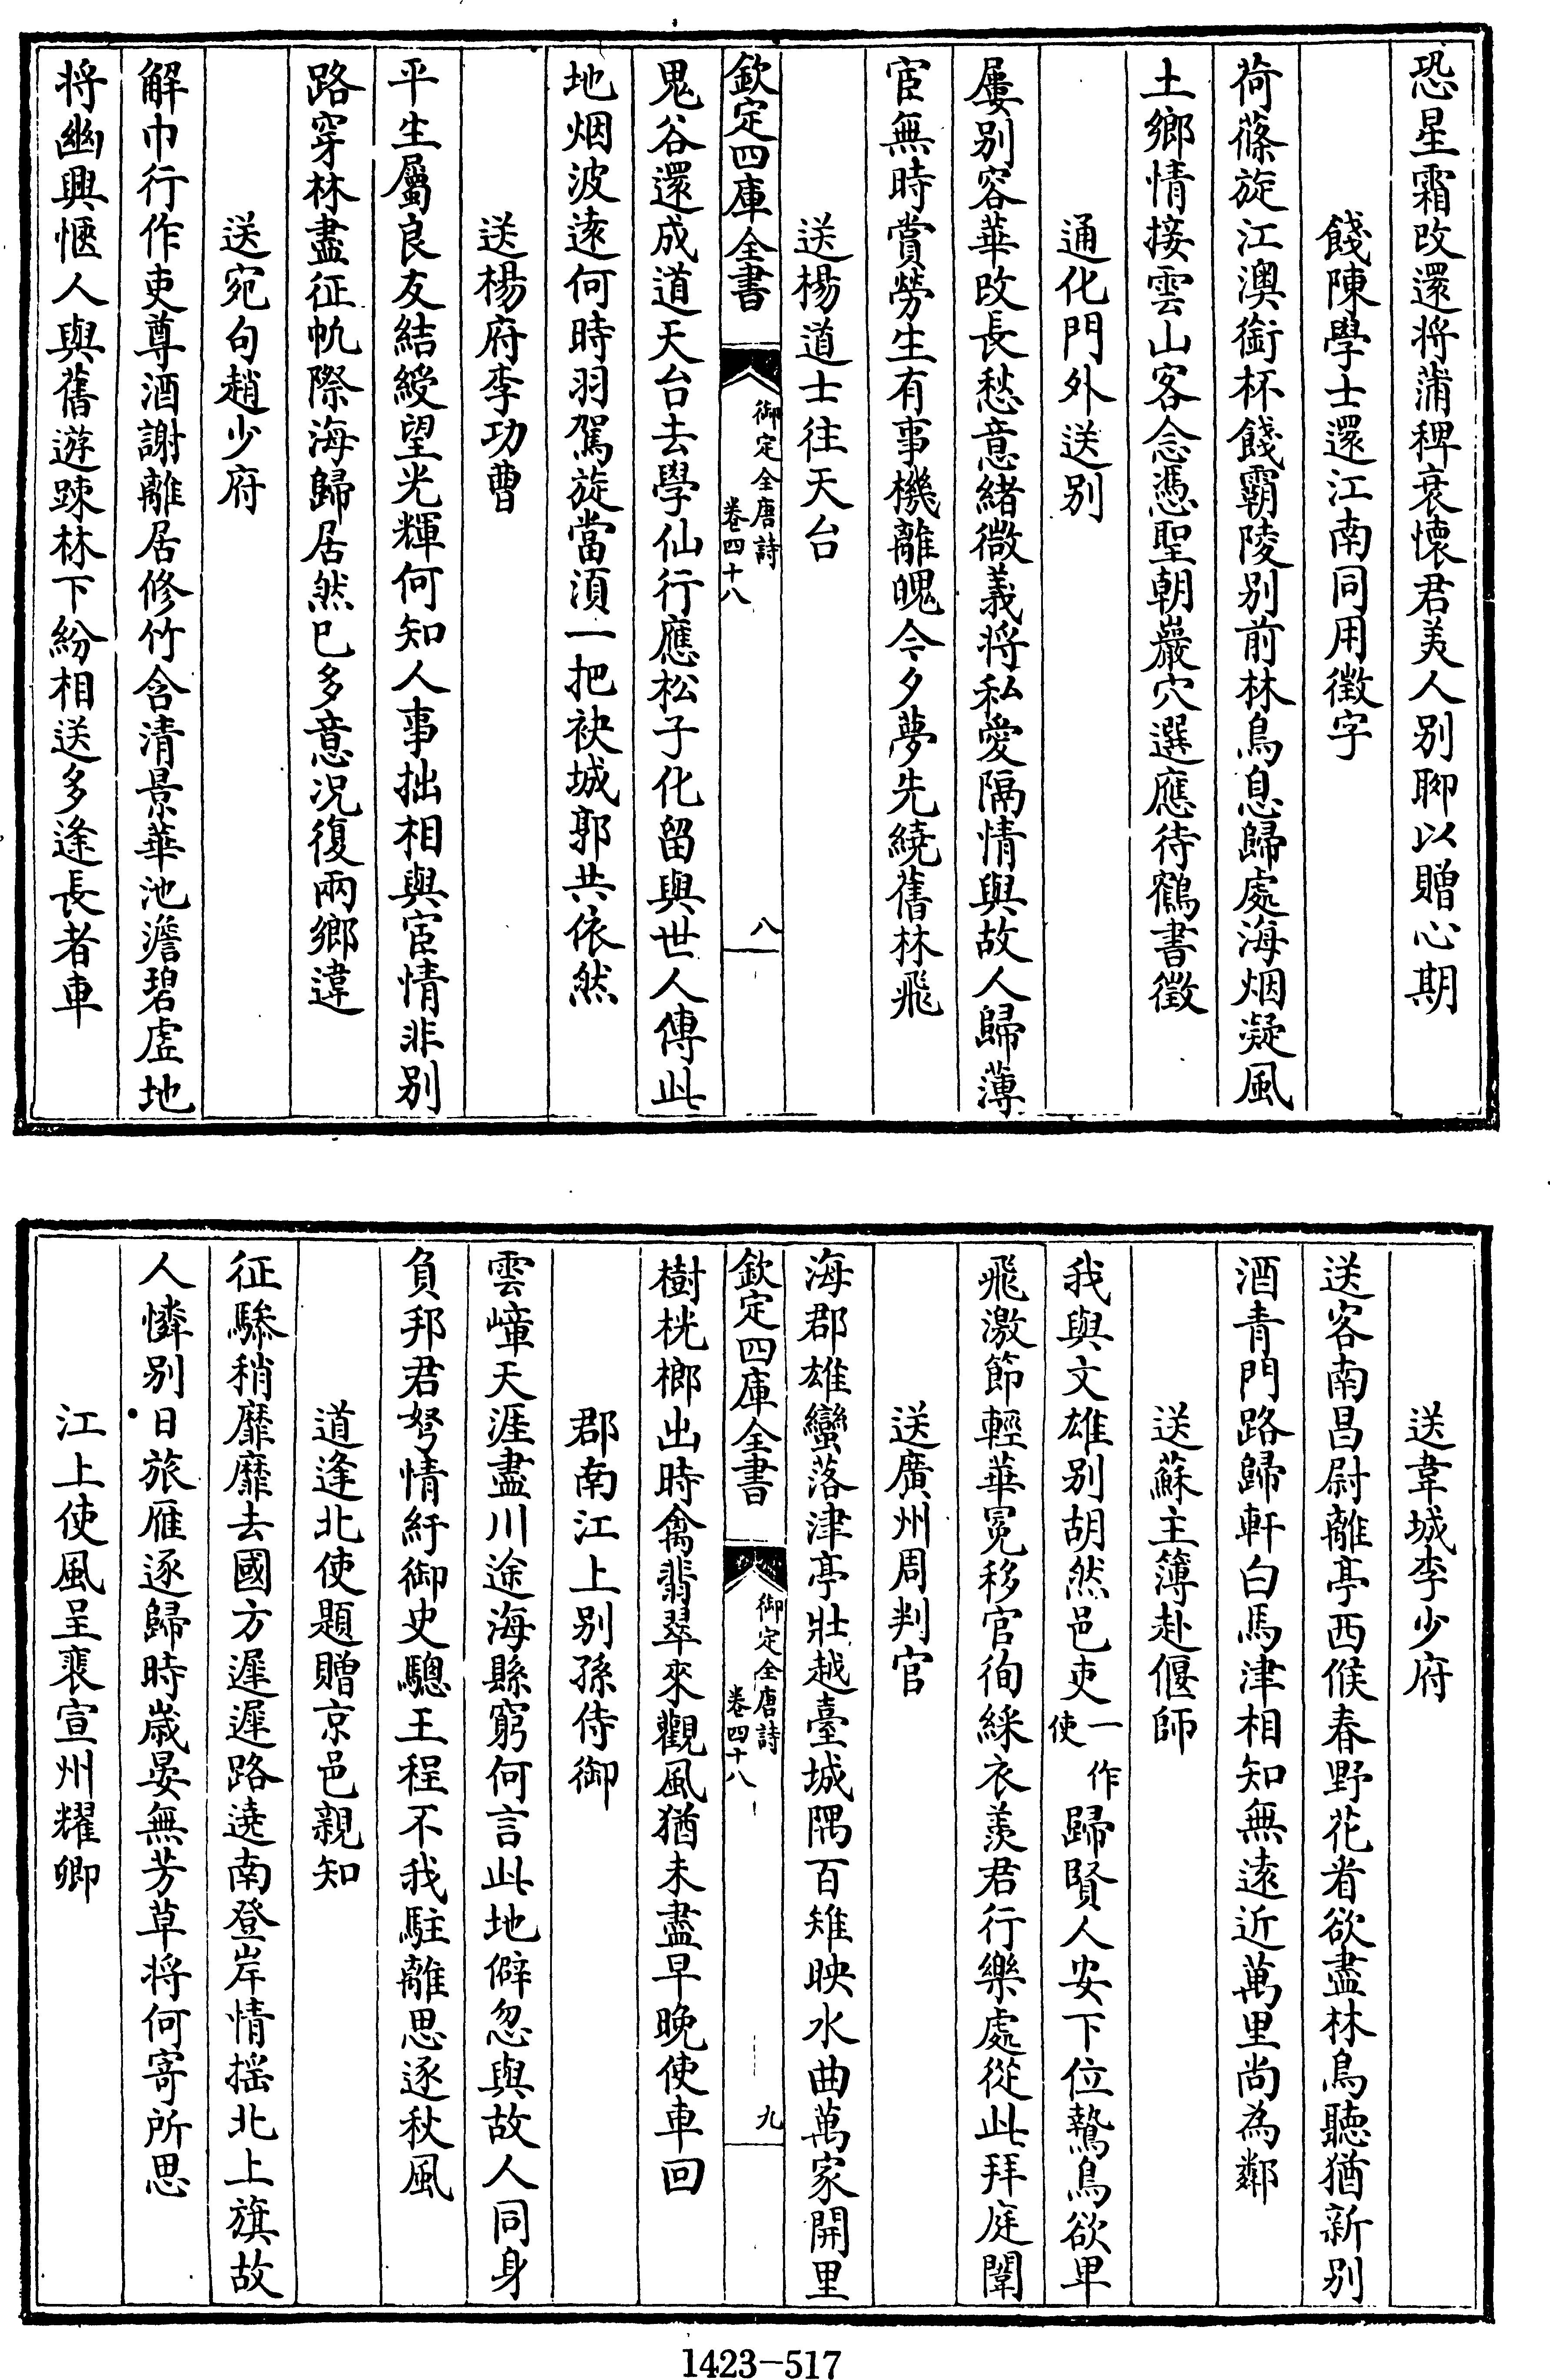 恐星霜改還将蒲稗衰懐君美人别聊以贈心期
餞陳學士還江南同用徵字
荷蓧旋江澳銜杯餞霸陵别前林鳥息歸處海烟凝風
土鄉情接雲山客念憑聖朝巖穴選應待鶴書徵
通化門外送别
屢别容華改長愁意緒微義将私愛隔情與故人歸薄
宦無時賞勞生有事機離魄今夕夢先繞舊林飛
送楊道士往天台
欽定四庫全書
御定全唐詩
卷四十八
八
鬼谷還成道天台去學仙行應松子化留與世人傳此
地烟波遠何時羽駕旋當須一把袂城郭共依然
送楊府李功曹
平生屬良友結綬望光輝何知人事拙相與宦情非别
路穿林盡征帆際海歸居然已多意況復兩鄉違
送宛句趙少府
解巾行作吏尊酒謝離居修竹含清景華池澹碧虛地
将幽興愜人與舊遊踈林下紛相送多逢長者車
送韋城李少府
送客南昌尉離亭西候春野花看欲盡林鳥聽猶新别
酒青門路歸軒白馬津相知無遠近萬里尚為鄰
送蘇主簿赴偃師
我與文雄别胡然邑吏一作使歸賢人安下位鷙鳥欲卑
飛激節輕華冕移官徇綵衣羨君行樂處從此拜庭闈
送廣州周判官
海郡雄蠻落津亭壯越臺城隅百雉映水曲萬家開里
欽定四庫全書
御定全唐詩
卷四十八
九
樹桄榔出時禽翡翠來觀風猶未盡早晚使車回
郡南江上别孫侍御
雲嶂天涯盡川途海縣窮何言此地僻忽與故人同身
負邦君弩情紆御史驄王程不我駐離思逐秋風
道逢北使題贈京邑親知
征驂稍靡靡去國方遲遲路遶南登岸情揺北上旗故
人憐别日旅雁逐歸時歲晏無芳草将何寄所思
江上使風呈裴宣州耀卿
1423-517